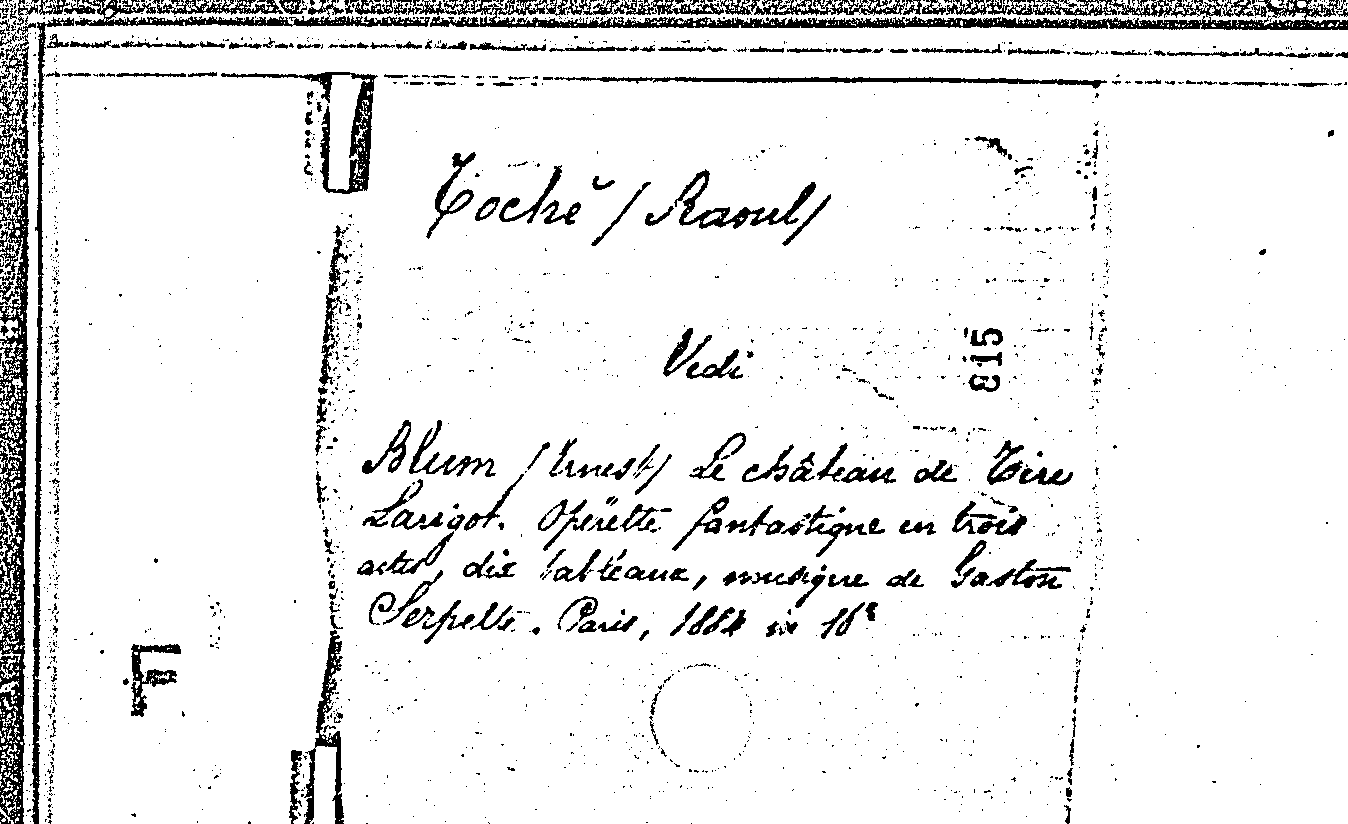 Toché /Raoul/
Vedi
815
Blum /Ernest/ Le château de Tire
Larigot. Opérette fantastique en trois
actes, dix tableaux, musique de Gaston
Serpette. Paris, 1884 in 16°
F